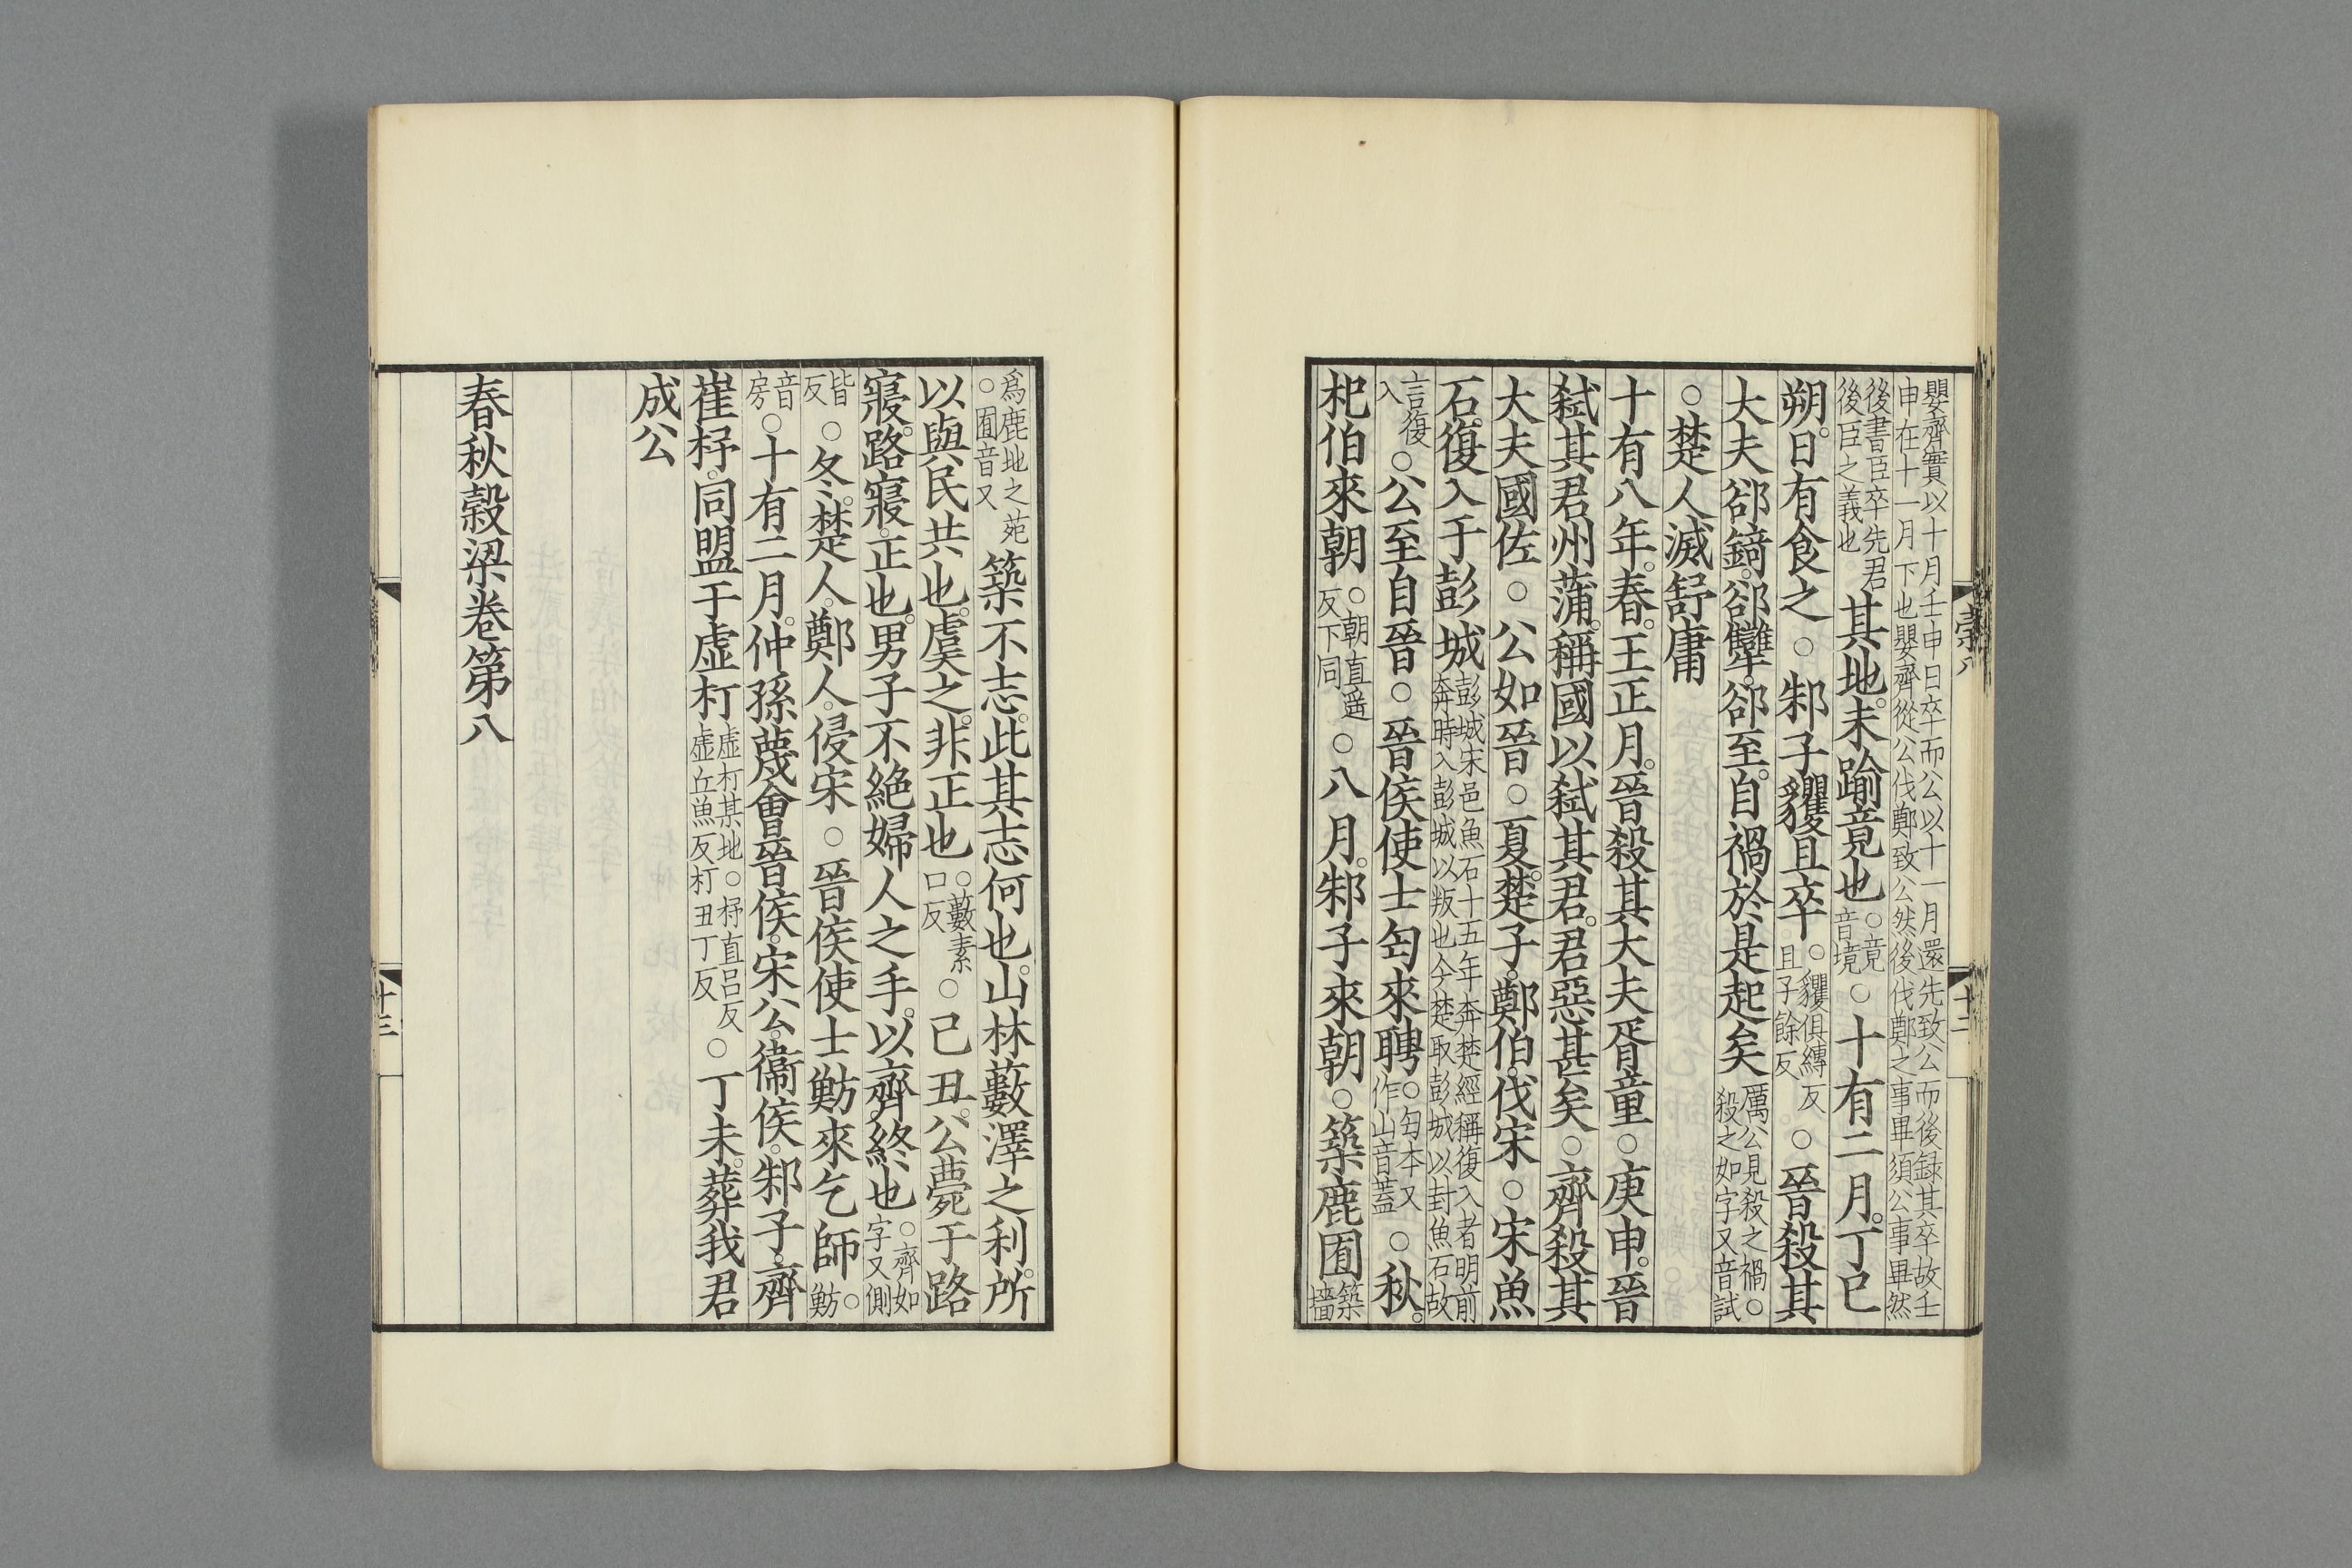 嬰齊實以十月壬申日卒而公以十一月還先致公而後録其卒故壬
申在十一月下也嬰齊從公伐鄭致公然後伐鄭之事畢須公事畢然
後書臣卒先君
後臣之義也
其地未踰竟也
○竟
音境
○十有二月丁巳
朔日有食之○邾子貜且卒
○貜俱縛反
且子餘反
○晉殺其
大夫郤錡郤犫郤至自禍於是起矣
厲公見殺之禍○
殺之如字又音試
○楚人滅舒庸
十有八年春王正月晉殺其大夫胥童○庚申晉
弑其君州蒲稱國以弑其君君惡甚矣○齊殺其
大夫國佐○公如晉○夏楚子鄭伯伐宋○宋魚
石復入于彭城
彭城宋邑魚石十五年奔楚經稱復入者明前
奔時入彭城以叛也今楚取彭城以封魚石故
言復
入
○公至自晉○晉侯使士匄來聘
○匄本又
作山音蓋
○秋
杞伯來朝
○朝直遥
反下同
○八月邾子來朝○築鹿囿
築
墻
爲鹿地之苑
○囿音又
築不志此其志何也山林藪澤之利所
以與民共也虞之非正也
○藪素
口反
○己丑公薨于路
寢路寢正也男子不絶婦人之手以齊終也
○齊如
字又側
皆
反
○冬楚人鄭人侵宋○晉侯使士魴來乞師
○
魴
音
房
○十有二月仲孫蔑會晉侯宋公衞侯邾子齊
崔杼同盟于虚朾
虚朾某地○杼直吕反
虚丘魚反朾丑丁反
○丁未葬我君
成公
春秋穀梁卷第八
十二
十三